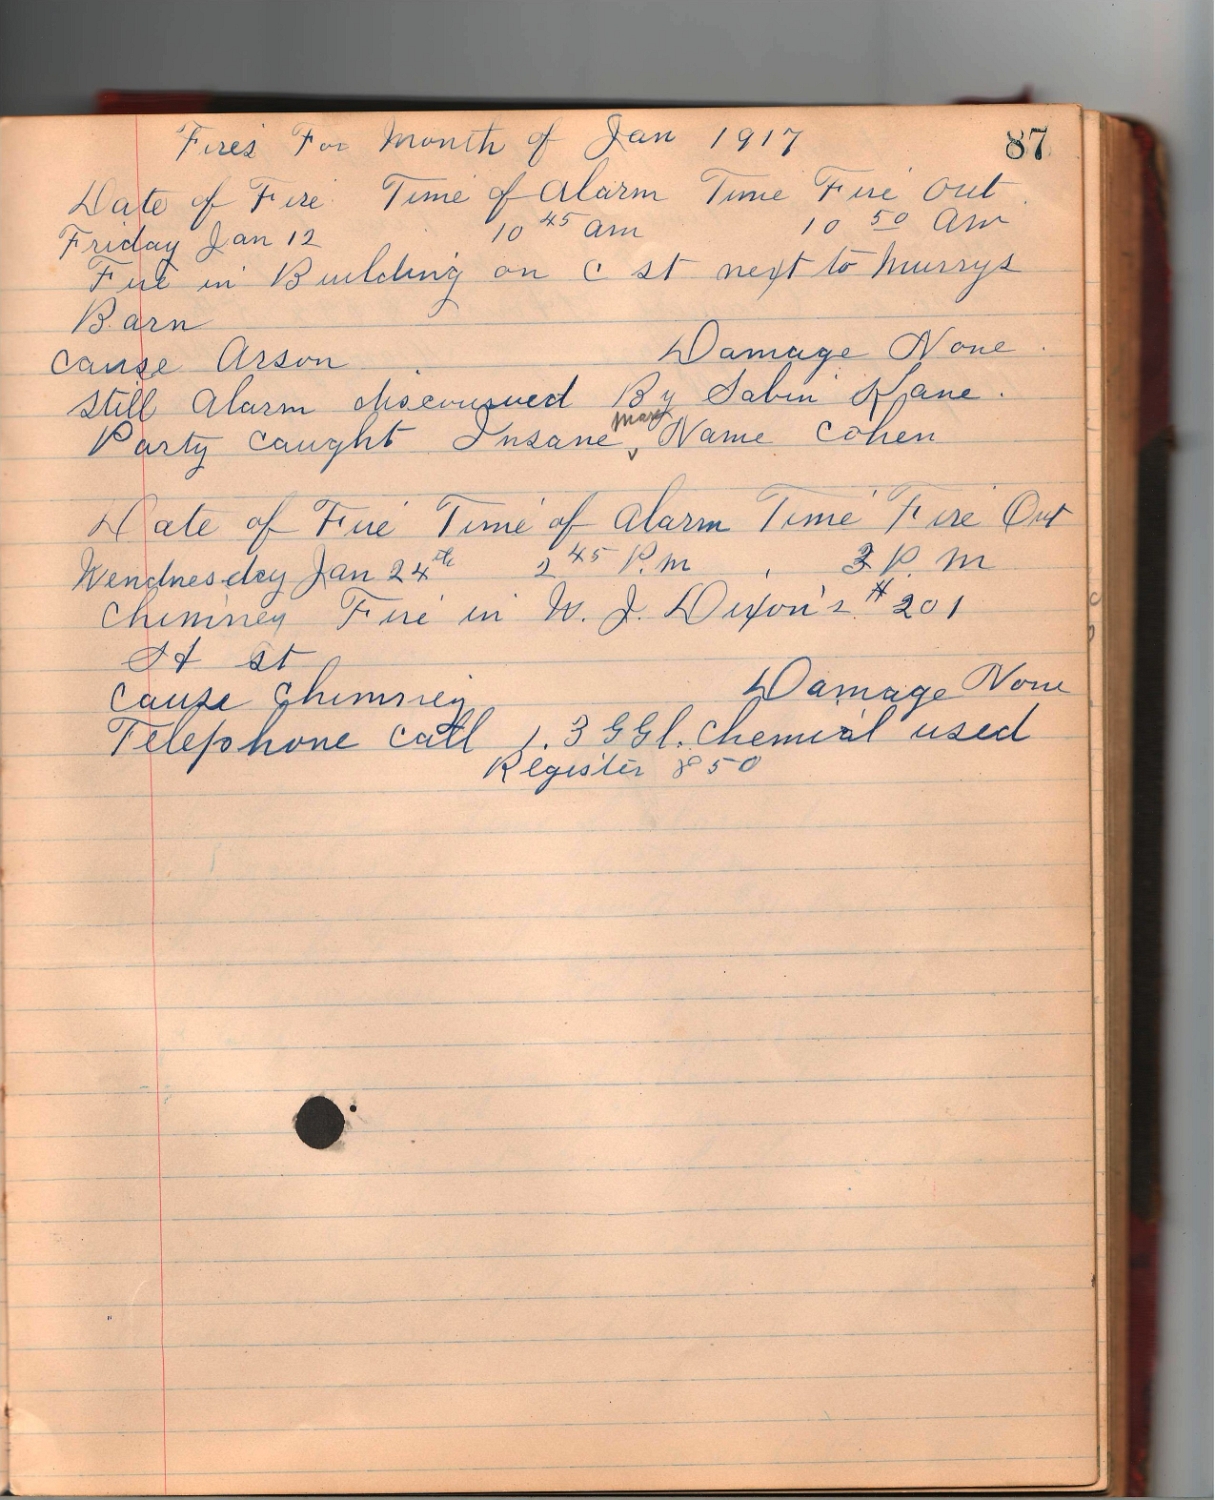 Fires For Month of Jan 1917 87
Date of Fire Time of Alarm Time Fire Out
Friday Jan 12 10 45 am 10 50 Am
Fire in Building on C st next to Murrys
Barn
Cause Arson Damage None
Still Alarm By Sabin Kane.
Party Caught Insane Name Cohen
Date of Fire Time of Alarm Time Fire Out
Wendnesday Jan 24th 2 45 P.M 3 P. M
Chimney Fire in W. J. Dixon's #201
st
Cause Chimney Damage None
Telephone Call 1. 3 GGl. Chemical used
Register 850